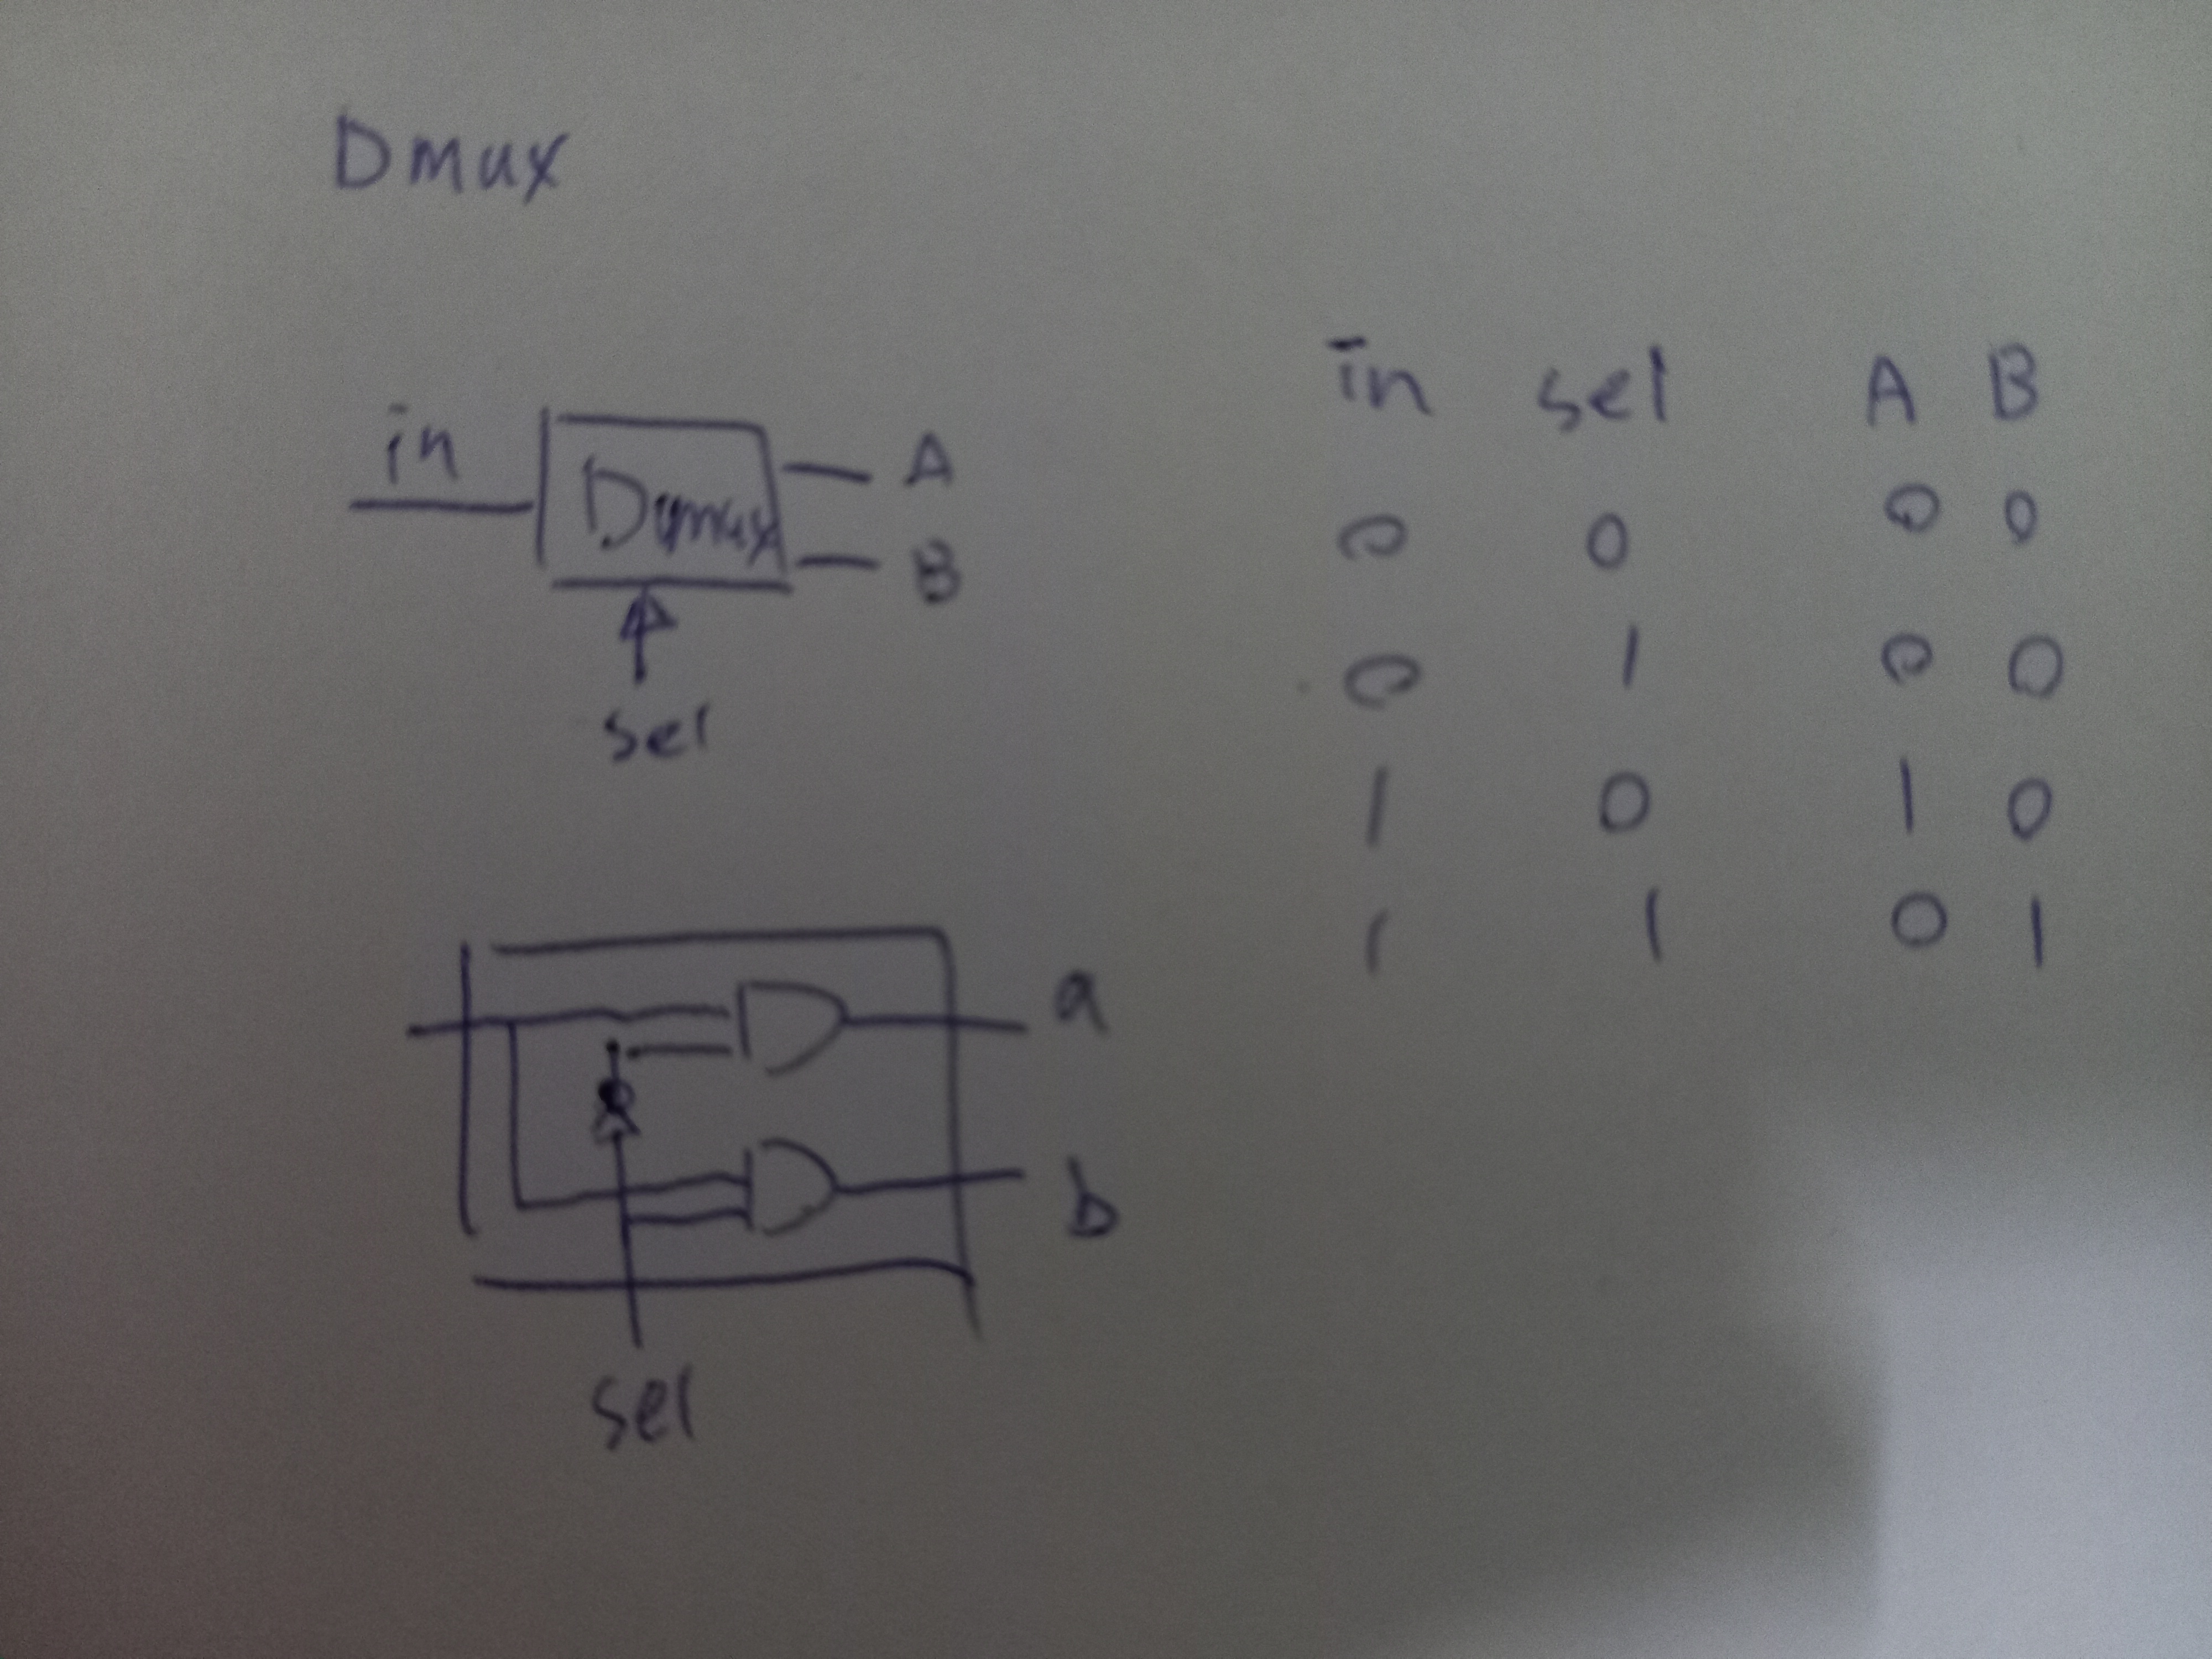 Dmux
in Dmux A
B
sel
a
b
sel
in sel A B
0 0 0 0
0 1 0 0
1 0 1 0
1 1 0 1